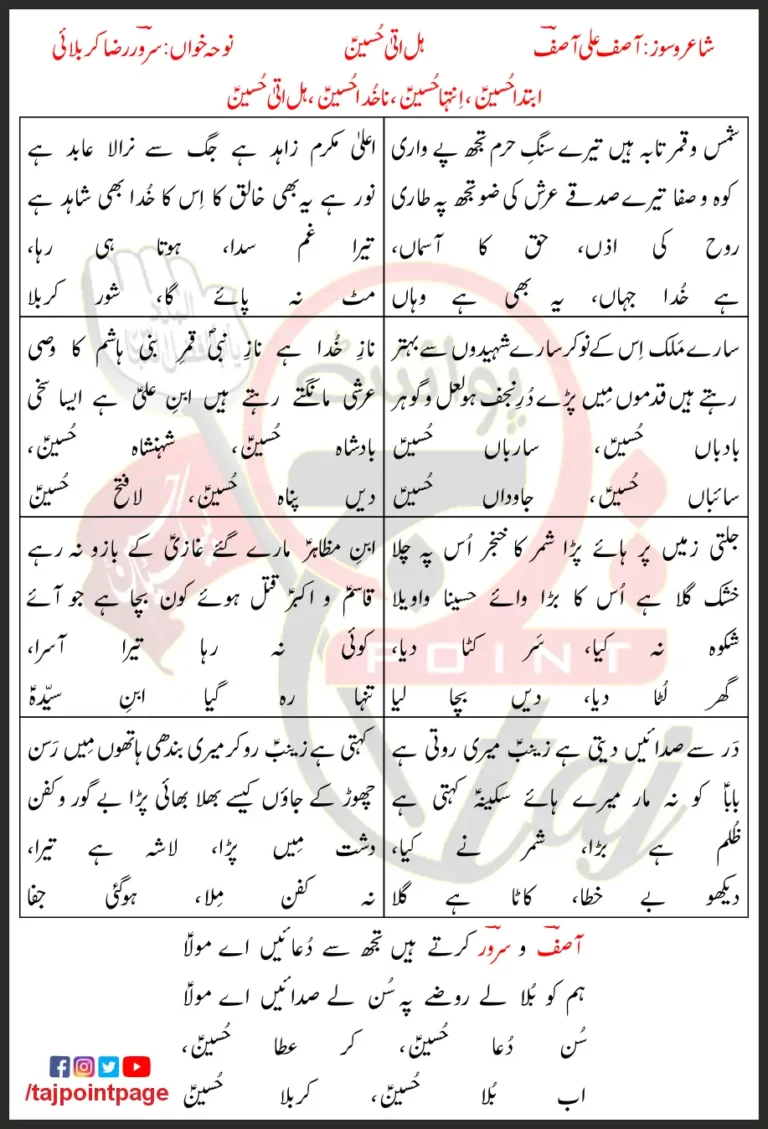 شاعر و سوز: آصف علی آصفؔ
ہل اتیٰ حُسینؑ
نوحہ خواں: سرورؔ رضا کربلائی
ابتدا حُسینؑ، اِنتہا حُسینؑ، ناخُدا حُسینؑ، ہل اتیٰ حُسینؑ
شمس و قمر تابہ ہیں تیرے سنگِ حرم تجھ پے واری
کوہ و صفا تیرے صدقے عرش کی ضو تجھ پہ طاری
روح کی اذاں، حق کا آسماں،
ہے خُدا جہاں، یہ بھی ہے وہاں
اعلیٰ مکرم زاہد ہے جگ سے نرالا عابد ہے
نور ہے یہ بھی خالق کا اِس کا خُدا بھی شاہد ہے
تیرا غم سدا، ہوتا ہی رہا،
مٹ نہ پائے گا، شور کربلا
سارے مَلک اِس کے نوکر سارے شہیدوں سے بہتر
رہتے ہیں قدموں مِیں پڑے دُرِ نجف ہو لعل و گوہر
بادباں حُسینؑ، سارباں حُسینؑ
سائباں حُسینؑ، جاوداں حُسینؑ
نازِ خُدا ہے نازِ نبیؐ قمرِ بنی ہاشم کا وصی
عرشی مانگتے رہتے ہیں ابنِ علیؑ ہے ایسا سخی
بادشاہ حُسینؑ، شہنشاہ حُسینؑ،
دیں پناہ حُسینؑ، لا فتح حُسینؑ
جلتی زمیں پر ہائے پڑا شمر کا خنجر اُس پہ چلا
خشک گلا ہے اُس کا بڑا وائے حسینا واویلا
شکوہ نہ کیا، سَر کٹا دیا،
گھر لُٹا دیا، دیں بچا لیا
ابنِ مظاہرؑ مارے گئے غازیؑ کے بازو نہ رہے
قاسمؑ و اکبرؑ قتل ہوئے کون بچا ہے جو آئے
کوئی نہ رہا تیرا آسرا،
تنہا رہ گیا ابنِ سیّدہؑ
دَر سے صدائیں دیتی ہے زینبؑ میری روتی ہے
باباؑ کو نہ مار میرے ہائے سکینہؑ کہتی ہے
ظُلم ہے بڑا، شمر نے کیا،
دیکھو بے خطا، کاٹا ہے گلا
کہتی ہے زینبؑ رو کر میری بندھی ہاتھوں مِیں رَسن
چھوڑ کے جاؤں کیسے بھلا بھائی پڑا بے گور و کفن
دشت مِیں پڑا، لاشہ ہے تیرا،
نہ کفن مِلا، ہوگئی جفا
آصفؔ و سرورؔ کرتے ہیں تجھ سے دُعائیں اے مولاؑ
ہم کو بُلا لے روضے پہ سُن لے صدائیں اے مولاؑ
سُن دُعا حُسینؑ، کر عطا حُسینؑ،
اب بُلا حُسینؑ، کربلا حُسینؑ
/tajpointpage
POINT
taj